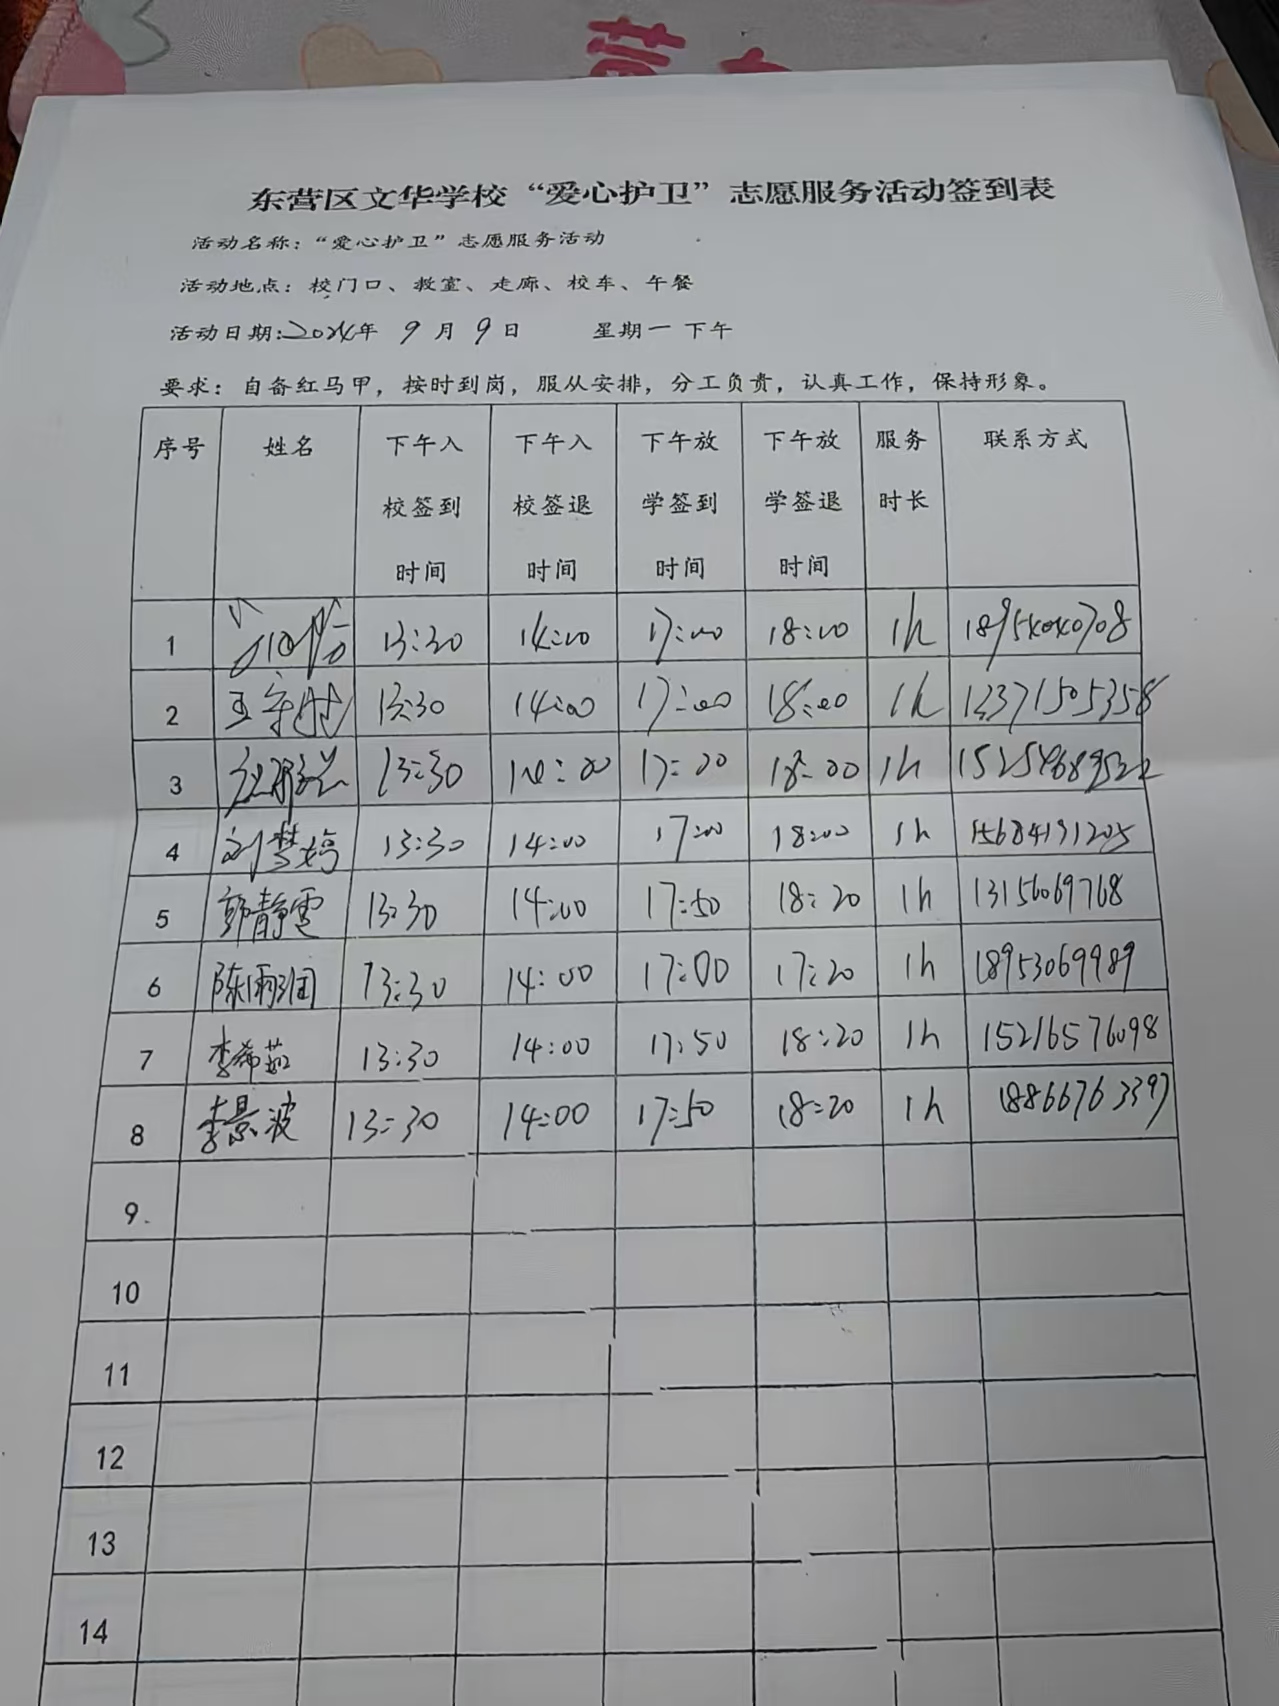 东营区文华学校“爱心护卫”志愿服务活动签到表
活动名称：“爱心护卫”志愿服务活动
活动地点：校门口、教室、走廊、校车、午餐
活动日期:2024年 9月9日 星期一 下午
要求：自备红马甲，按时到岗，服从安排，分工负责，认真工作，保持形象。
序号 姓名 下午入校签到时间 下午入校签退时间 下午放学签到时间 下午放学签退时间 服务时长 联系方式
1 13:30 14:00 17:00 18:00 1h
2 13:30 14:00 17:00 18:00 1h
3 13:30 14:00 17:00 18:00 1h
4 刘梦婷 13:30 14:00 17:00 18:00 1h 15684191205
5 郭静雪 13:30 14:00 17:50 18:20 1h 13156069768
6 陈雨润 13:30 14:00 17:00 17:20 1h 18953069989
7 李希茹 13:30 14:00 17:50 18:20 1h 15216576098
8 李景波 13:30 14:00 17:50 18:20 1h 18866763397
9
10
11
12
13
14